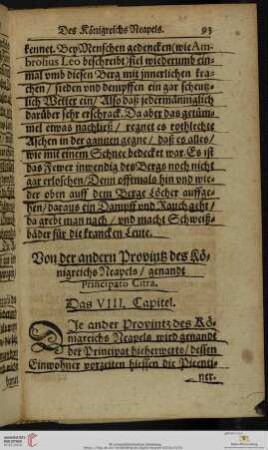 Des Königreichs Neapels. 93
kennet. Bey Menschen gedencken (wie Am-
brosius Leo beschreibt) fiel wiederumb ein-
mal umb diesen Berg mit innerlichen kra-
chen / sieden und dempffen ein gar scheutz-
lich Wetter ein / Also daß jedermänniglich
darüber sehr erschrack. Da aber das getüm-
mel etwas nachließ / regnet es rothlechte
Aschen in der gantzen gegne / daß es alles /
wie mit einem Schnee bedecket war. Es ist
das Fewer inwendig des Bergs noch nicht
gar erloschen / Denn offtmals hin und wie-
der oben auff dem Berge Löcher auffge-
hen / daraus ein Dampff und Rauch geht /
da grebt man nach / und macht Schweiß-
bäder für die krancken Leute.
Von der andern Provintz des Kö-
nigreichs Neapels / genandt
Principato Citra.
Das VIII. Capitel.
DIe ander Provintz des Kö-
nigreichs Neapels wird genandt
der Principat hierwerts / dessen
Einwohner vorzeiten hiessen die Picenti-
ner.